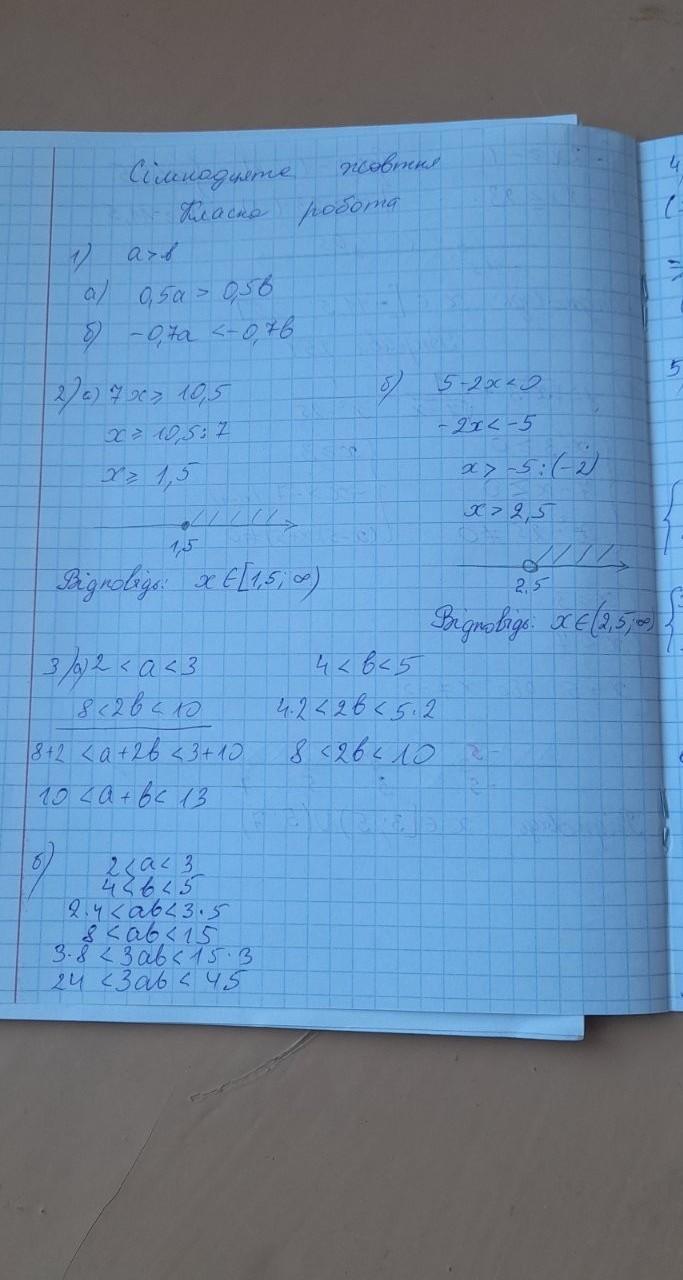 Сімнадцяте жовтня
Класна робота
1) a>b
а) 0,5a > 0,5b
б) -0,7a <-0,7b
2) а) 7x ≥ 10,5
x ≥ 10,5:7
x ≥ 1,5
1,5
Відповідь: x∈[1,5; ∞)
б) 5-2x<0
-2x< -5
x > -5:(-2)
x > 2,5
2,5
Відповідь: x∈(2,5; ∞)
3) а) 2 < a < 3
8 < 2b < 10
8+2 < a+2b < 3+10
10 < a+b < 13
4 < b < 5
4·2 < 2b < 5·2
8 < 2b < 10
б) 2 < a < 3
4 < b < 5
2·4 < ab < 3·5
8 < ab < 15
3·8 < 3ab < 15·3
24 < 3ab < 45
4
(-
=
5